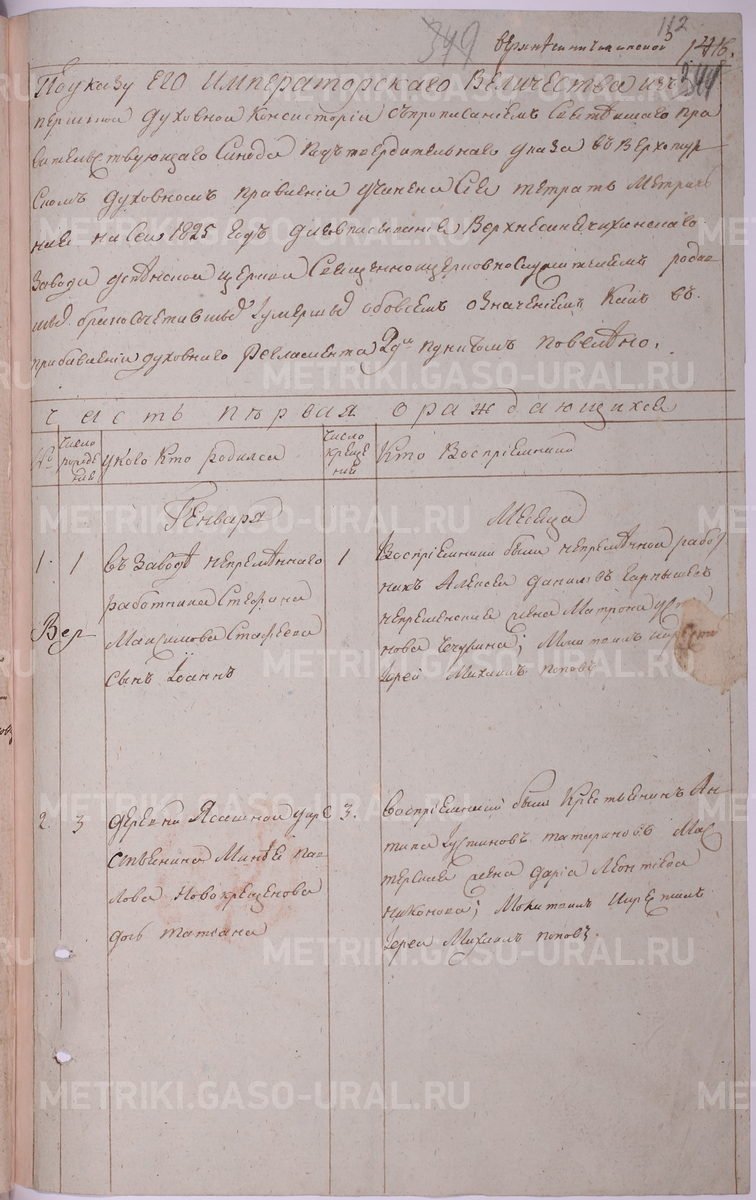 349
112
верхнесинячихинской
146.
344
По указу ЕГО Императорскаго Величества изъ
пермской духовной консисторіи съ прописаніемъ Святѣйшаго пра
вительствующаго Синода подтвердительнаго указа въ Верхотур
скомъ духовномъ правленіи учинена сія тетрать Метриче
ская на сей 1825 годъ для вписыванія Верхнесинячихинскаго
Завода успѣнской церкви Священноцерковнослужителямъ родив
шыхъ бракосочетавшыхъ и умершыхъ обовсемъ означенномъ какъ въ
прибавленіи духовнаго Регламента 2мъ пунктомъ повелѣно.
часть первая о раждающихся
№
число рожде нія
У кого кто родился
число креще ній
Кто Воспріемники
Генваря
Месяца
1. 1
въ Заводѣ непремѣннаго
работника Стефана
Максимова Стафеева
сынъ Іоаннъ
Вер
1
Воспріемники были непремѣнной работ
никъ Алексей даниловъ
жена Матрона
нова ; Молитвилъ и крести
Іерей Михаилъ поповъ
2. 3
деревни Ясашной кре
стьянина Минѣя пав
лова Новокрещенова
дочь татіана
3.
Воспріемники были Крестьянинъ Ан
типа Іустиновъ татариновъ Ма
жена даріа Леонтіева
никонова; Молитвилъ и крестилъ
Іерей Михаилъ поповъ
METRIKI.GASO-URAL.RU